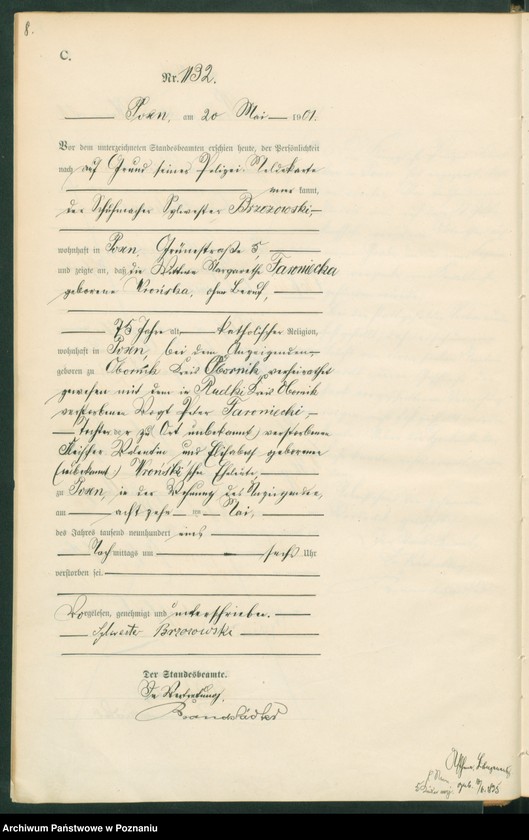 8.
C.
Nr. 1132.
Posen, am 20 Mai 1901.
Vor dem unterzeichneten Standesbeamten erschien heute, der Persönlichkeit
nach auf Grund seiner Polizei Meldekarte
kannt,
der Schuhmacher Sylvester Brzozowski
wohnhaft in Posen, Grünestraße 5,
und zeigte an, daß die Wittwe Margareth
geborene Wrońska, ohne Beruf,
75 Jahre alt, katholischer Religion,
wohnhaft in Posen, bei dem Anzeigenden
geboren zu Kreis Obornik, verheirathet
gewesen mit dem in Rudki Kreis Obornik
verstorbenen Vogt Peter
Tochter der zu Ort unbekannt verstorbenen
Valentin und Elisabeth geborene
(unbekannt) Wroński'schen Eheleute,
zu Posen, in der Wohnung des Anzeigenden,
am achtzehn ten Mai,
des Jahres tausend neunhundert eins
Nachmittags um sechs Uhr
verstorben sei.
Vorgelesen, genehmigt und unterschrieben.
Sylwester Brzozowski
Der Standesbeamte.
In Vertretung.
Archiwum Państwowe w Poznaniu